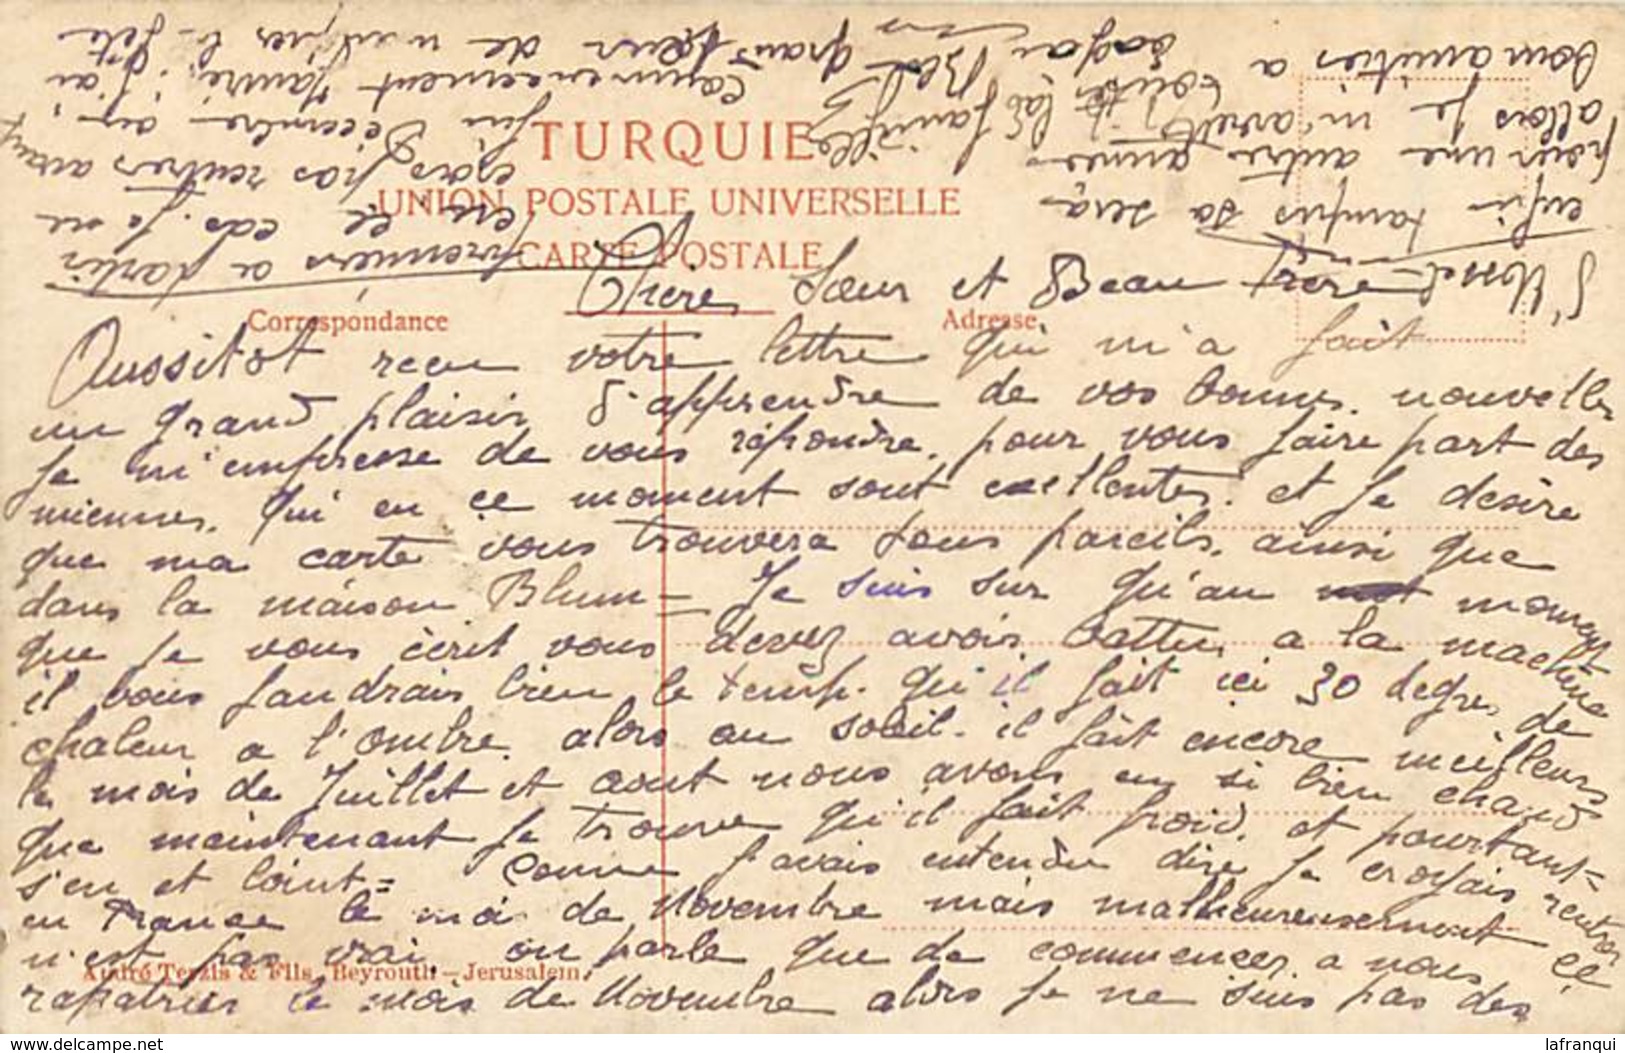 TURQUIE
UNION POSTALE UNIVERSELLE
CARTE POSTALE
Correspondance
Adresse
Chere Sœur et Beau Frere
Aussitot recu votre lettre qui m'a fait
un grand plaisir d'apprendre de vos bonnes nouvelles
Je m'empresse de vous répondre, pour vous faire part des
miennes. Qui en ce moment sont exellentes. et Je desire
que ma carte vous trouvera tous pareils. ainsi que
dans la maison Blum = Je suis sur qu'au moment
que Je vous écrit vous devez avoir battu a la machine
il vous faudrais bien le temp. qu'il fait ici 30 degres de
chaleur a l'ombre. alors au soleil. il fait encore meilleur
le mois de Juillet et aout nous avons eu si bien chaud
que maintenant Je trouve qu'il fait froid. et pourtant =
s'en et loint = Comme J'avais entendu dire Je croyais rentrer
en France le moi de Novembre mais malheureusement ce
n'est pas vrai on parle que de commencer a nous
rapatrier le mois de Novembre alors Je ne suis pas des
premiers a partir
en ce cas. Je ne
crois pas rentrer avant
fin Décembre ou
commencement Janvier, j'ai
grand peur de manquer la fête
S'
enfin tanpis sa sera
pour une autre année
allors Je m'arrete
bon amities a toute la famille
André Terzis & Fils, Beyrouth – Jerusalem.
https://www.delcampe.net
lafranqui